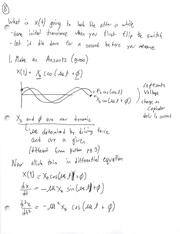 What is x(t) going to look like after a while
- some initial transients when you first flip the switch
- let it die down for a second before you measure
1. Make an Ansatz (guess)
X(t) = X₀ cos(ωt + φ)
represents
Voltage
charge on
capacitor
X₀ and φ are now
are determined by driving force
and are a given
(different from
Now
this in differential equation
X(t) = X₀ cos(ωt + φ)
dx/dt = -ωX₀ sin(ωt + φ)
d²x/dt² = -ω² X₀ cos(ωt + φ)